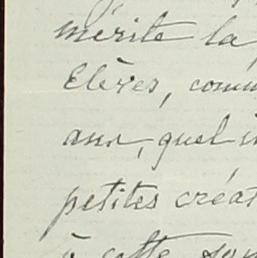 mérite la
Elèves, comm
ans, quel i
petites créat
à cette son